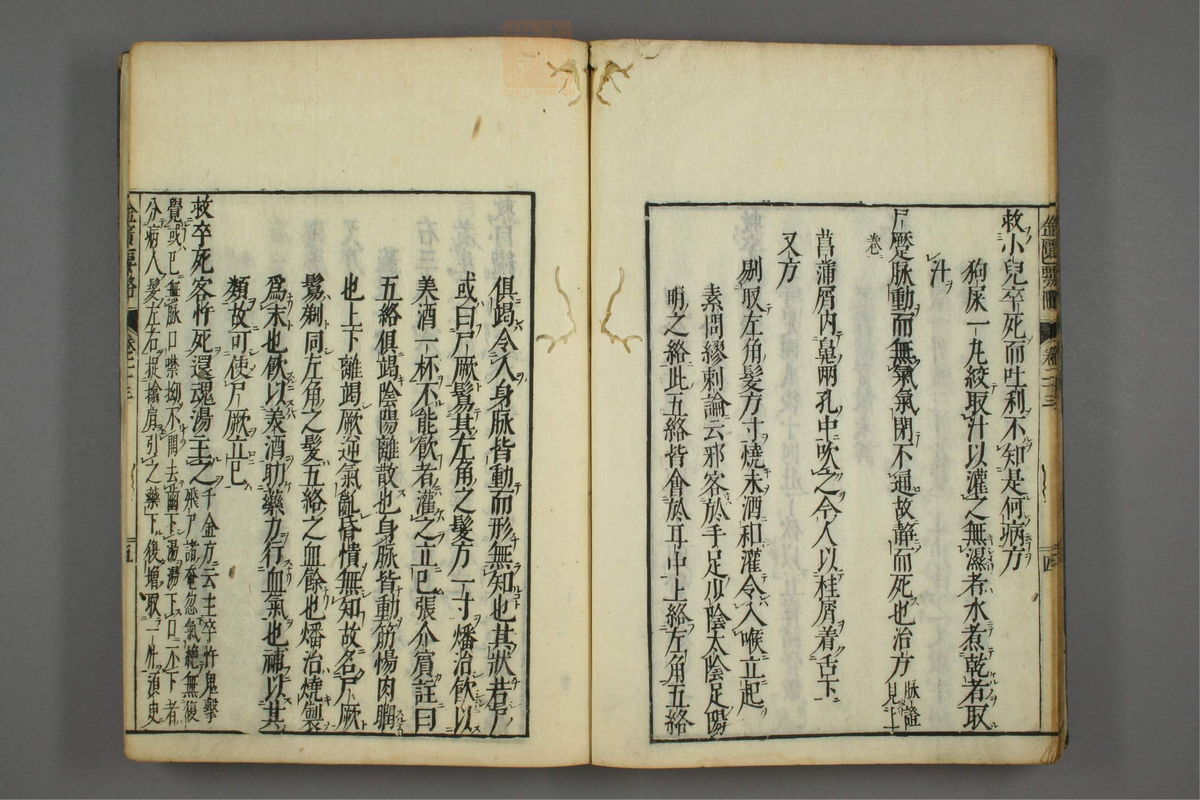 救小兒卒死而吐利不知是何病方
狗屎一丸絞取汁以灌之無濕者水煮乾者取
汁
尸蹷脉動而無氣氣閉不通故靜而死也治方脉證見上
卷
菖蒲屑内鼻兩孔中吹之令人以桂屑着舌下
又方
剔取左角髮方寸燒末酒和灌令入喉立起
素問繆刺論云邪客於手足少陰太陰足陽
明之絡此五絡皆會於耳中上絡左角五絡
俱竭令人身脉皆動而形無知也其狀若尸
或曰尸厥鬄其左角之髮方一寸燔治飲以
美酒一杯不能飲者灌之立已張介賓註曰
五絡俱竭陰陽離散也身脉皆動筋惕肉瞤
也上下離竭厥逆氣亂昏憒無知故名尸厥
鬄剃同左角之髮五絡之血餘也燔治燒製
爲末也飲以美酒助藥力行血氣也補以其
類故可使尸厥立已
救卒死客忤死還魂湯主之千金方云主卒忤鬼擊
飛尸諸奄忽氣絶無復
覺或已無脉口噤拗不開去齒下湯湯下口不下者
分病人髮左右捉搶肩引之藥下復增取一升須臾
金匱要略 卷二十三
四
五